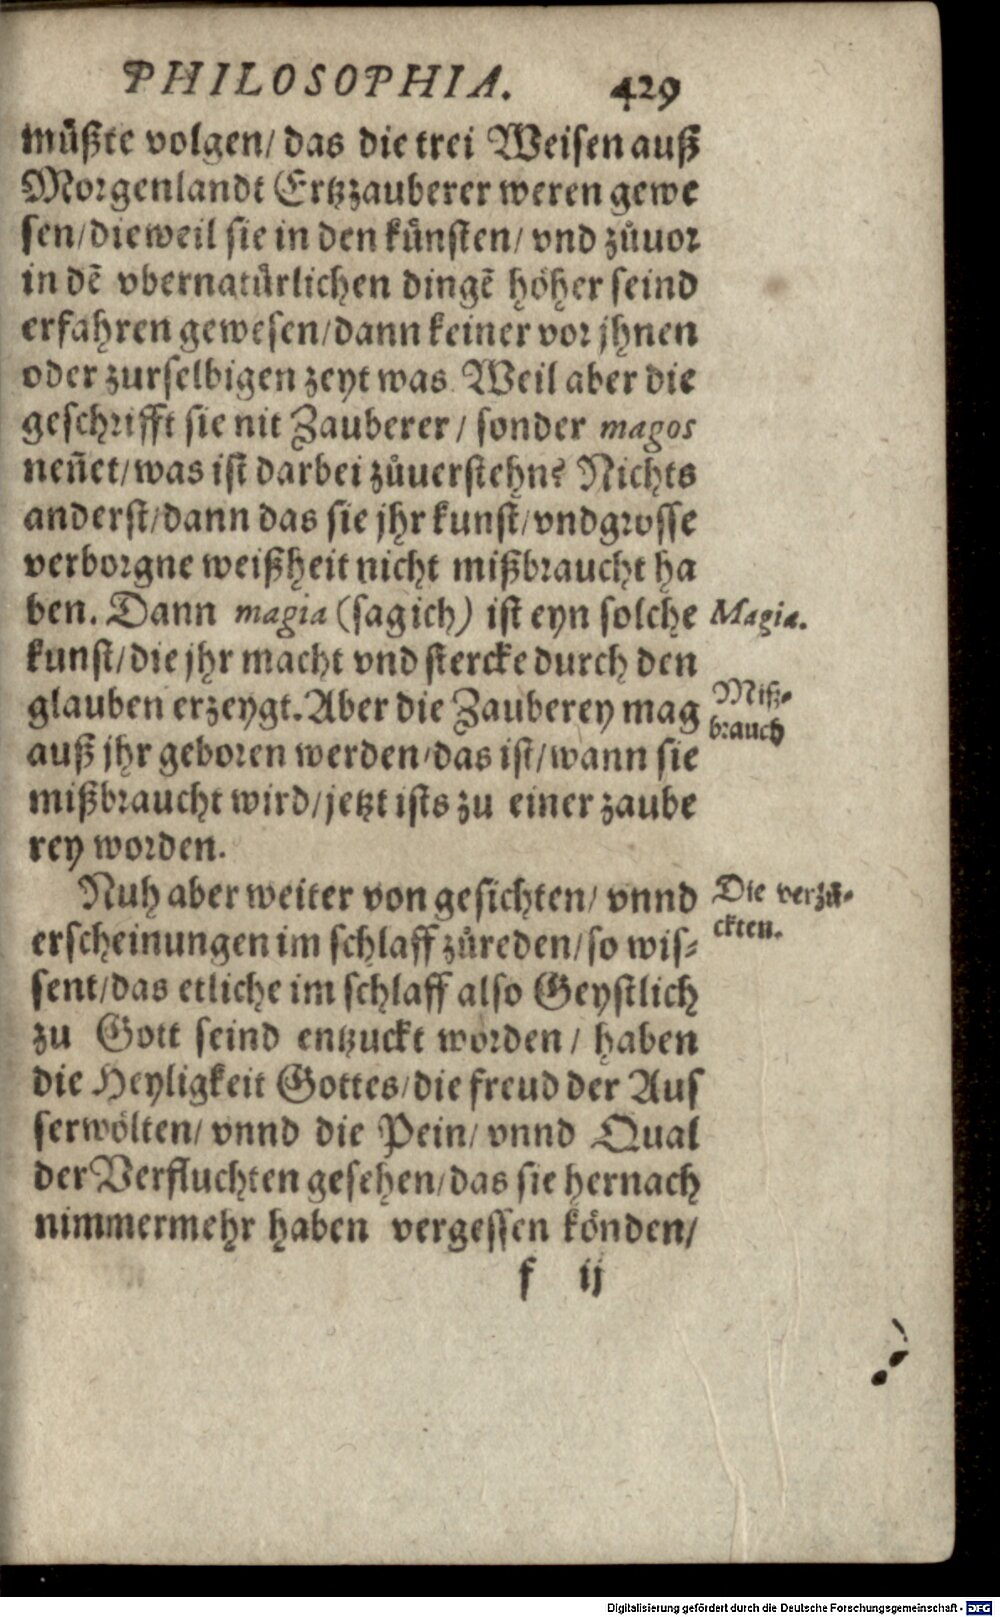 PHILOSOPHIA. 429
müßte volgen/ das die trei Weisen auß
Morgenlandt Ertzzauberer weren gewe
sen/ dieweil sie in den künsten/ vnd zůuor
in dē vbernatürlichen dingē höher seind
erfahren gewesen/ dann keiner vor jhnen
oder zurselbigen zeyt was. Weil aber die
geschrifft sie nit Zauberer/ sonder magos
neñet/ was ist darbei zůuerstehn? Nichts
anderst/ dann das sie jhr kunst/ vnd grosse
verborgne weißheit nicht mißbraucht ha
ben. Dann magia (sag ich) ist eyn solche
Magia.
kunst/ die jhr macht vnd stercke durch den
glauben erzeygt. Aber die Zauberey mag
Miß-
brauch
auß jhr geboren werden/ das ist/ wann sie
mißbraucht wird/ jetzt ists zu einer zaube
rey worden.
Nuh aber weiter von gesichten/ vnnd
Die verzü-
ckten.
erscheinungen im schlaff zůreden/ so wis-
sent/ das etliche im schlaff also Geystlich
zu Gott seind entzuckt worden/ haben
die Heyligkeit Gottes/ die freud der Aus
serwölten/ vnnd die Pein/ vnnd Qual
der Verfluchten gesehen/ das sie hernach
nimmermehr haben vergessen könden/
f ij
Digitalisierung gefördert durch die Deutsche Forschungsgemeinschaft - DFG